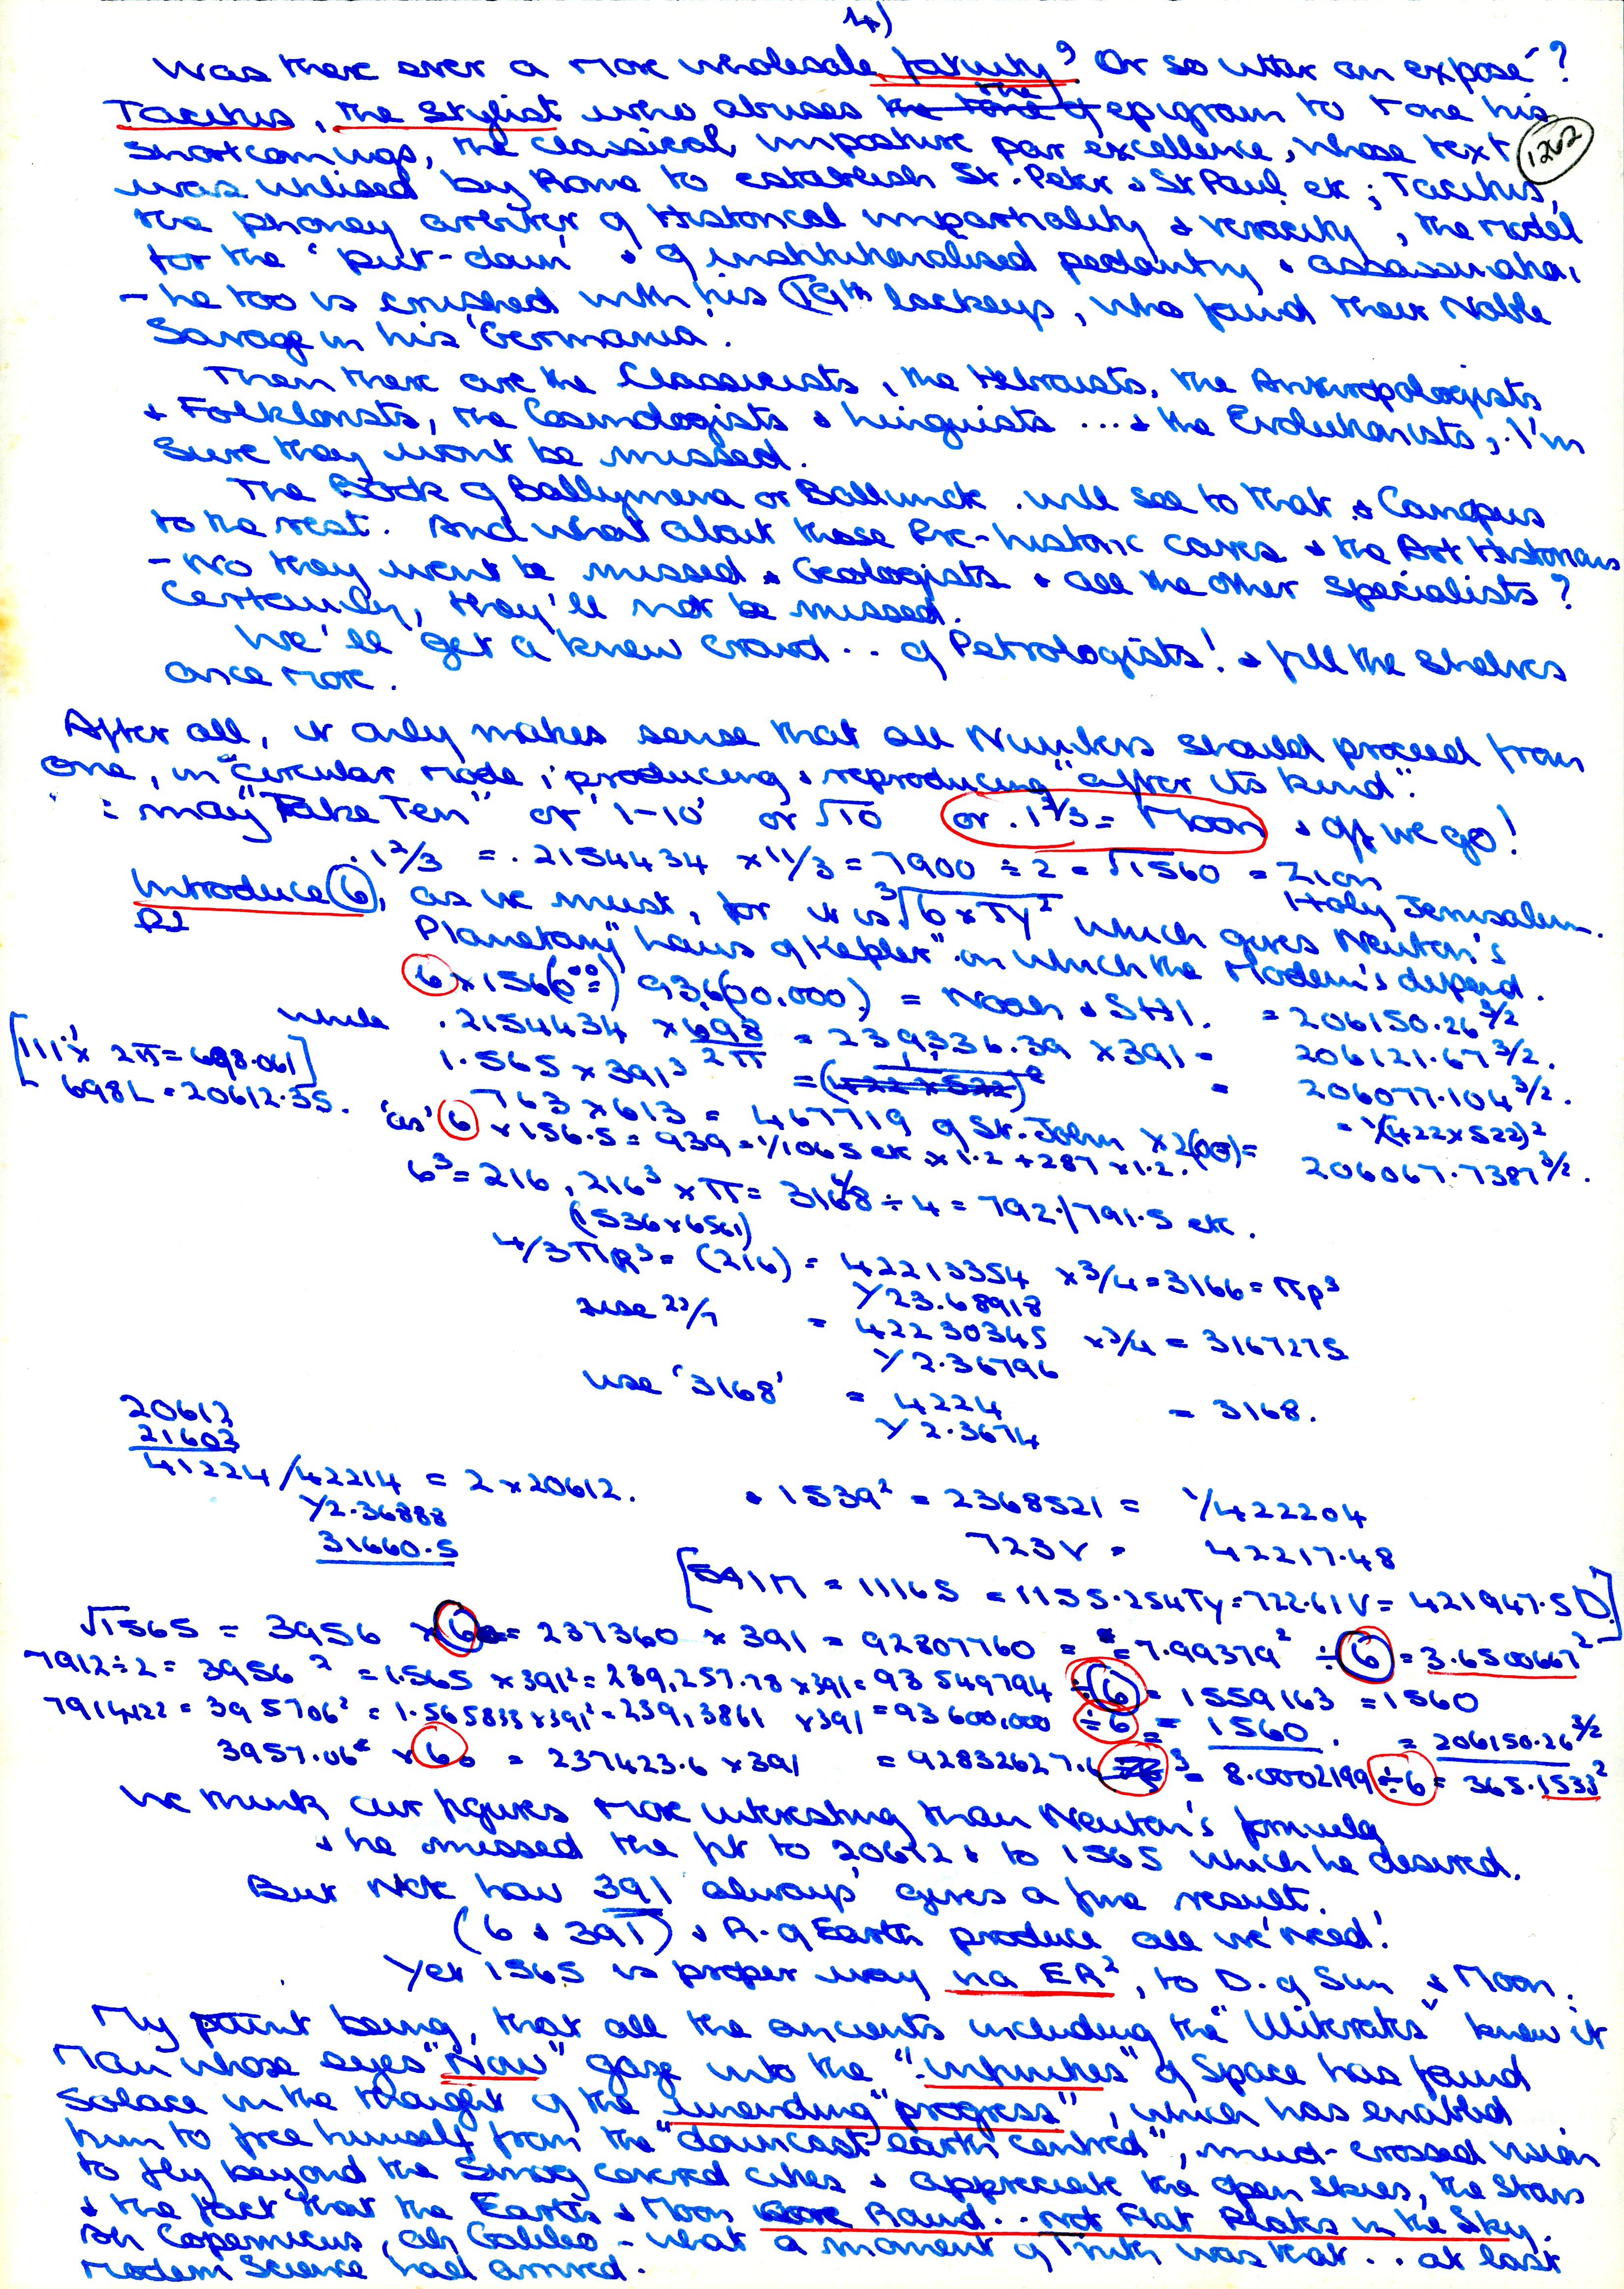 14)
Was there ever a more wholesale fatuity? Or so utter an exposé?
Tacitus, the Stylist who abuses the epigram to tone his
shortcomings, the classical imposture par excellence, whose text
1262
was utilised by Rome to establish St. Peter & St Paul etc; Tacitus,
the phoney arbiter of Historical impartiality & veracity, the model
for the 'put-down' & of institutionalised pedantry & assassination
- he too is crushed with his 19th lackeys, who found their Noble
Savage in his 'Germania.
Then there are the Classicists, the Hebraists, the Anthropologists
& Folklorists, the Cosmologists & Linguists ... & the Evolutionists, I'm
sure they wont be missed.
The Book of Ballymena or will see to that & Canopus
to the rest. And what about those Pre-historic caves & the Art Historians
- No they wont be missed & Geologists & all the other specialists?
Certainly, they'll not be missed.
We'll get a knew crowd .. of Petrologists! & fill the shelves
once more.
After all, it only makes sense that all Numbers should proceed from
one, in "circular mode, 'producing & reproducing" after its kind".
: may "Take Ten" or '1-10' or √10 or .1 2/3 = Moon & off we go!
.1 2/3 = .2154434 x 11/3 = 7900 ÷ 2 = √1560 = Zion
Holy Jerusalem.
Introduce 6, as we must, for it is ³√6 x Ty² which gives Newton's
Planetary "Laws of Kepler" on which the Modern's depend.
6 x 156(0°°) 93,6(00.000) = Noah & SHI. = 206150.26 3/2
while .2154434 x 698 = 239336.39 x 391 = 206121.67 3/2.
2π
[111.1 x 2π = 698.061]
1.565 x 391³ = 206077.104 3/2.
698L = 20612.35.
763 x 613 = 467719 of St. John x 2(00) = 206067.7387 3/2.
= 1/(422x522)²
'as' 6 x 156.5 = 939 = 1/1065 etc x 1.2 + 287 x 1.2.
6³ = 216, 216³ x π = 3166/8 ÷ 4 = 792./791.5 etc.
(1536 x 6561)
4/3πR³ = (216) = 42213354 x 3/4 = 3166 = πR³
Y 23.68918
use 22/7 = 42230345 x 3/4 = 3167275
Y 2.36796
use '3168' = 4224 = 3168.
Y 2.3674
20612
21602
41224/42214 = 2 x 20612.
Y2.36888
31660.5
& 1539² = 2368521 = 1/422204
723V = 42217.48
[591M = 11165 = 1155.254Ty = 722.61V = 421947.5D]
√1565 = 3956 x 60 = 237360 x 391 = 92807760 = 7.99379² ÷ 6 = 3.6500667²
7912÷2 = 3956² = 1.565 x 391² = 239,257.78 x 391 = 93549794 ÷ 6 = 1559163 = 1560
7914.122 = 395706² = 1.565833 x 391² = 239,3861 x 391 = 93600,000 ÷ 6 = 1560. = 206150.26 3/2
3957.06² x 60 = 237423.6 x 391 = 92832627.6 ³ = 8.00002199 ÷ 6 = 365.1533²
We think our figures more interesting than Newton's formula
& he missed the pt to 20612 & to 1565 which he desired.
But Note how 391 'always' gives a fine result.
(6 & 391) & R. of Earth produce all we 'need'!
Yet 1565 is proper way via ER², to D. of Sun & Moon.
My point being, that all the ancients including the "Illiterates" knew it
Man whose eyes "Now" gaze into the "infinities" of Space has found
Solace in the thought of the unending "progress", which has enabled
him to free himself from the "downcast earth centred", mud-crossed vision
to fly beyond the Smog covered cities & appreciate the open skies, the Stars
& the fact that the Earth & Moon were Round .. not Flat Plates in the Sky.
Ah Copernicus, ah Galileo - what a moment of Truth was that .. at last
Modern Science had arrived.